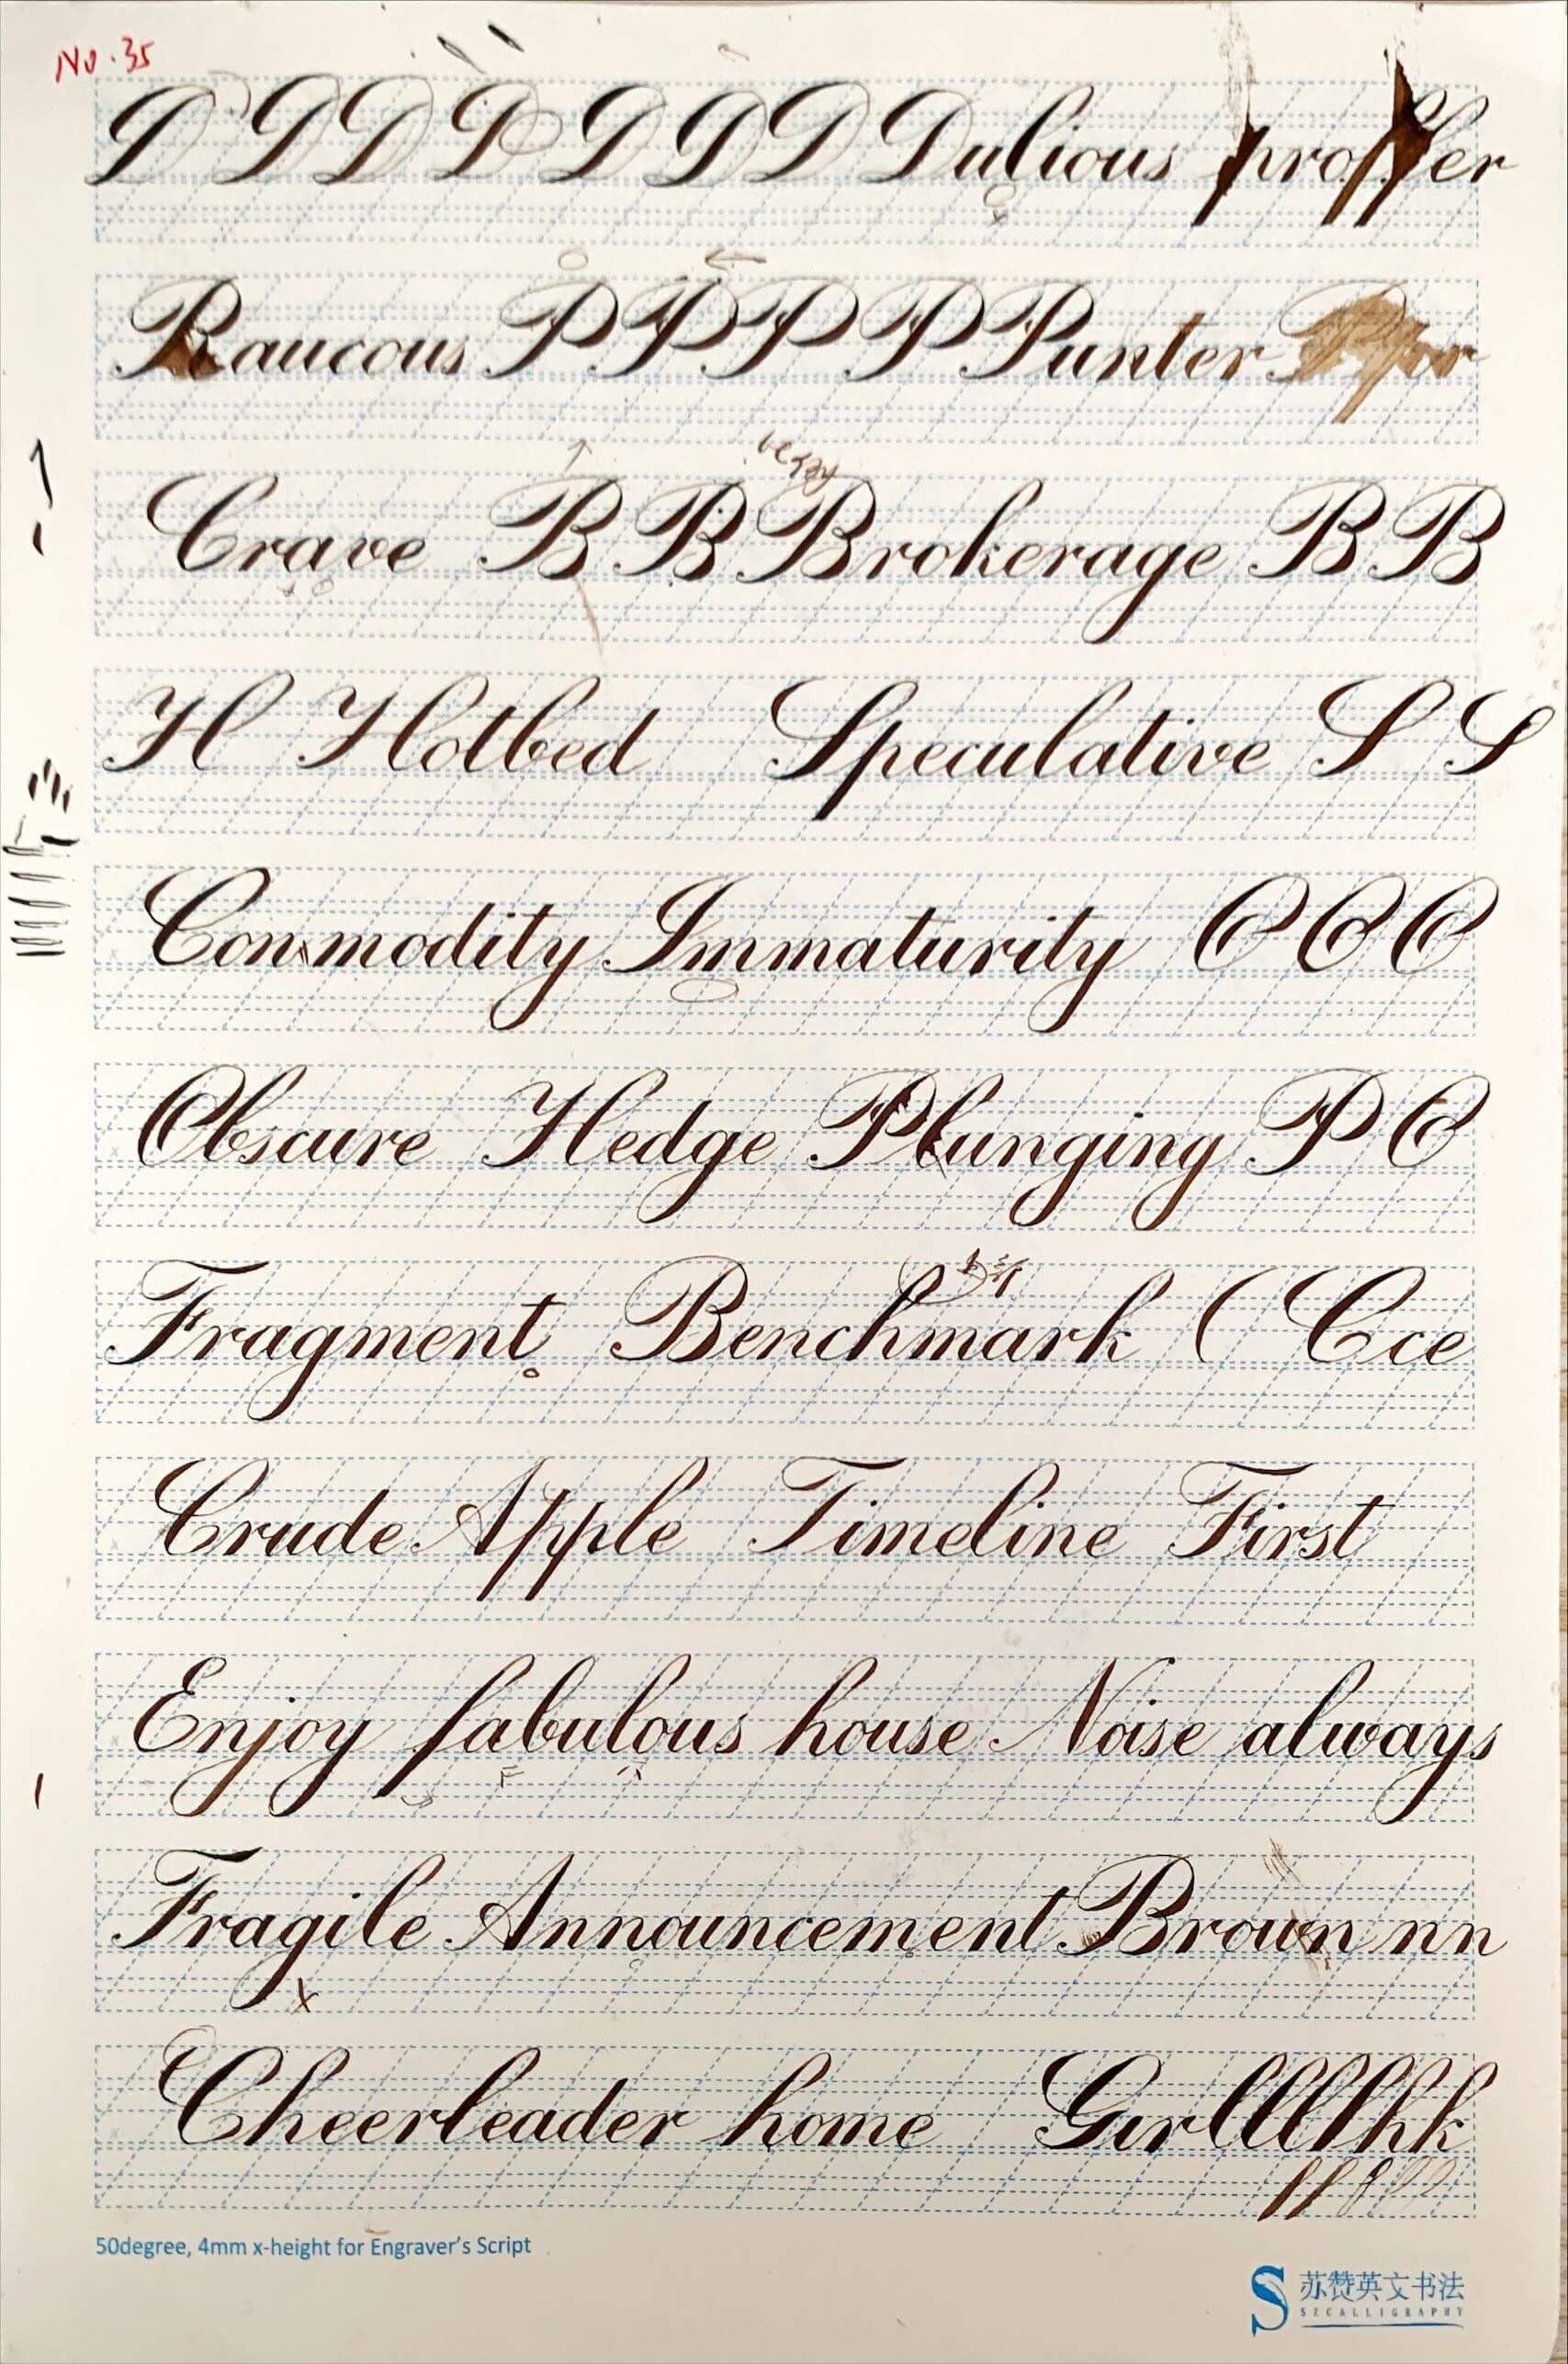 No.35
D D D D D D D Dulious proffer
Raucous P P P P Punter P for
Crave B B Brokerage B B
H Hotbed Speculative S S
Commodity Immaturity O O O
Obscure Hedge Plunging P O
Fragment Benchmark ( C ce
Crude Apple Timeline First
Enjoy fabulous house Noise always
Fragile Announcement Brown nn
Cheerleader home Girllllhk
50degree, 4mm x-height for Engraver's Script
苏赞英文书法
SZCALLIGRAPHY